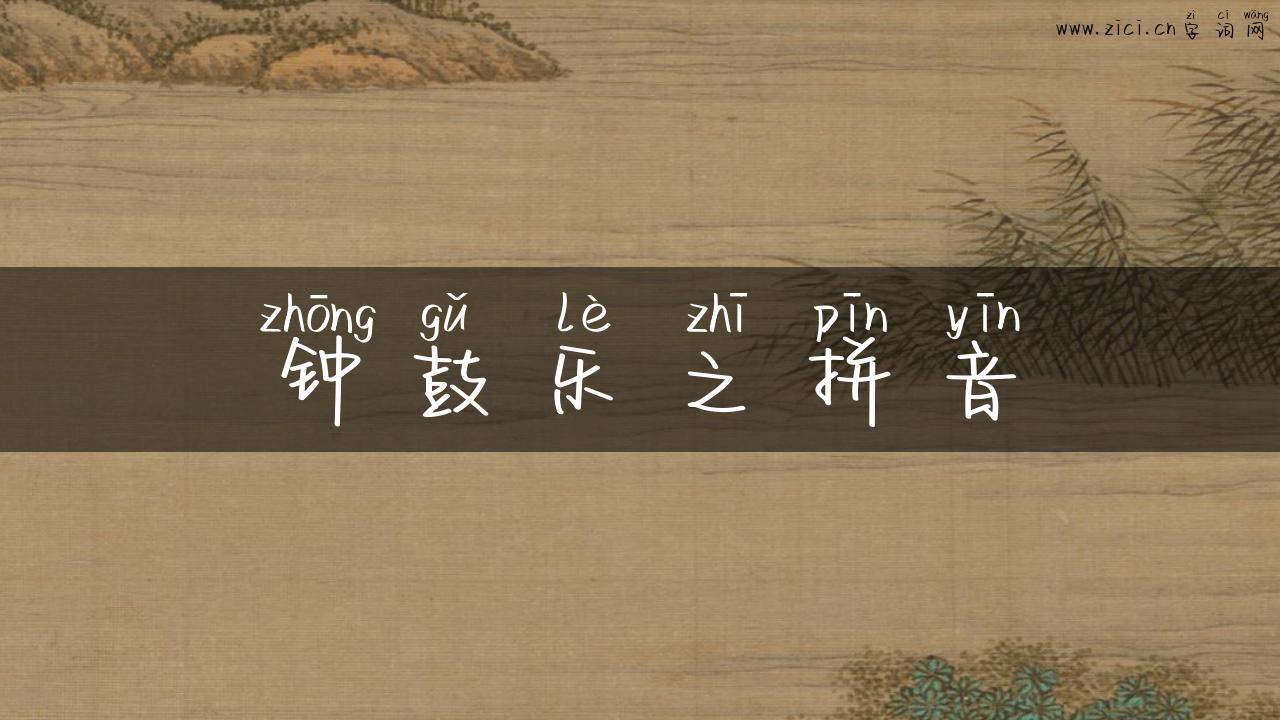 zì cí wǎng
www.zici.cn 字词网
zhōng gǔ lè zhī pīn yīn
钟鼓乐之拼音